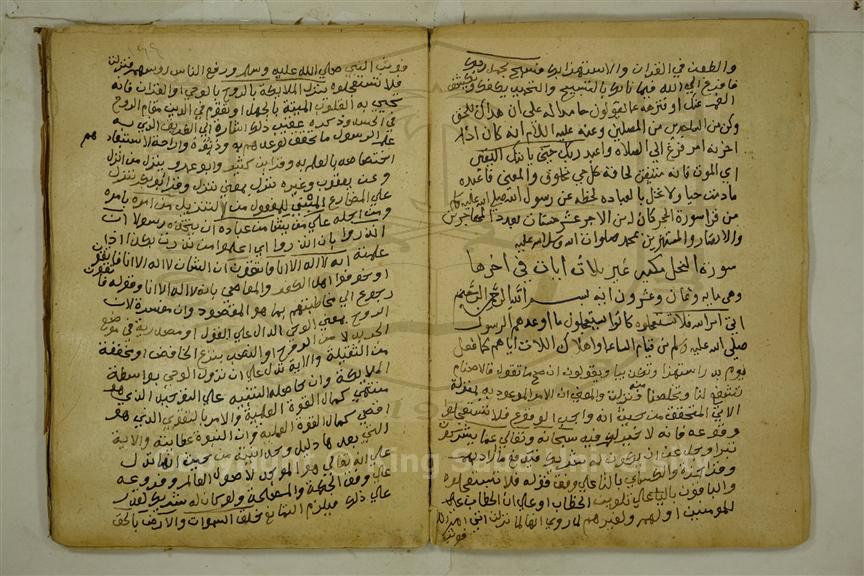 والطعن في القران والاستهزا بك فسبح بحمد ربك
فافزع الى الله فيما نابك بالتسبيح والتحميد يكفك ويكشف
الغم عنك او فنزهه عما يقولون حامدا له على ان هداك للحق
وكن من الساجدين من المصلين وعنه عليه السلام انه كان اذا
حزبه امر فزع الى الصلاة واعبد ربك حتى ياتيك اليقين
اي الموت فانه متيقن لحاقه كل حي مخلوق والمعنى فاعبده
ما دمت حيا ولا تخل بالعبادة لحظة عن رسول الله صلى الله عليه
من قرا سورة الحجر كان له من الاجر عشر حسنات بعدد المهاجرين
والانصار والمستهزئين بمحمد صلوات الله وسلامه عليه
سورة النحل مكيه غير ثلاث ايات في اخرها
وهي مايه وثمان وعشرون ايه بسم الله الرحمن الرحيم
اتى امر الله فلا تستعجلوه كانوا يستعجلون ما اوعدهم الرسول
صلى الله عليه وسلم من قيام الساعة او اهلاك الله اياهم كما فعل
يوم بدر استهزا وتكذيبا ويقولون ان صح ما تقول فالاصنام
تشفع لنا وتخلصنا منه فنزلت والمعنى ان الامر الموعود به بمنزلة
الاتي المتحقق من حيث انه واجب الوقوع فلا تستعجلوا
وقوعه فانه لا خير لكم فيه سبحانه وتعالى عما يشركون
تبرا وجل عن ان يكون له شريك فيدفع ما اراد بهم
وقرا حمزة والكسائي بالتا على وفق قوله فلا تستعجلوه
والباقون باليا على تلوين الخطاب او على ان الخطاب
للمومنين او لهم ولغيرهم لما روي انها لما نزلت اتى امر الله
فوثب
فوثب النبي صلى الله عليه وسلم ورفع الناس روسهم فنزلت
فلا تستعجلوه ينزل الملايكة بالروح بالوحي او القران فانه
تحيي به القلوب الميتة بالجهل او يقوم في الدين مقام الروح
في الجسد وذكره عقيب ذلك اشارة الى الطريق الذي به
علم الرسول ما تحقق موعدهم به ودنوه وازاحة لاستبعادهم
اختصاصه بالعلم به وقرا ابن كثير وابو عمرو ينزل من انزل
وعن يعقوب وغيره تنزل بمعنى تتنزل وقرا ابو بكر تنزل
على المضارع المبني للمفعول من التنزيل من امره بامره
ومن اجله على من يشا من عباده ان يتخذه رسولا ان
انذروا بان انذروا اي اعلموا من نذرت بكذا اذا
علمته انه لا اله الا انا فاتقون ان الشان لا اله الا انا فاتقون
او خوفوا اهل الكفر والمعاصي بانه لا اله الا انا وقوله فاتقون
رجوع الى مخاطبتهم بما هو المقصود وان مفسرة لان
الروح بمعنى الوحي الدال على القول او مصدرية في موضع
الجر بدلا من الروح او النصب بنزع الخافض او مخففة
من الثقيلة والاية تدل على ان نزول الوحي بواسطة
الملايكة وان حاصله التنبيه على التوحيد الذي هو
منتهى كمال القوة العلمية والامر بالتقوى الذي هو
اقصى كمال القوة العملية وان النبوة عطائية والاية
التي بعدها دليل وحدانيته من حيث انها تدل
على انه تعالى هو الموجد لاصول العالم وفروعه
على وفق الحكمة والمصلحة ولو كان له شريك لقدر
على ذلك فيلزم التمانع خلق السموات والارض بالحق
Copyright © King Saud University